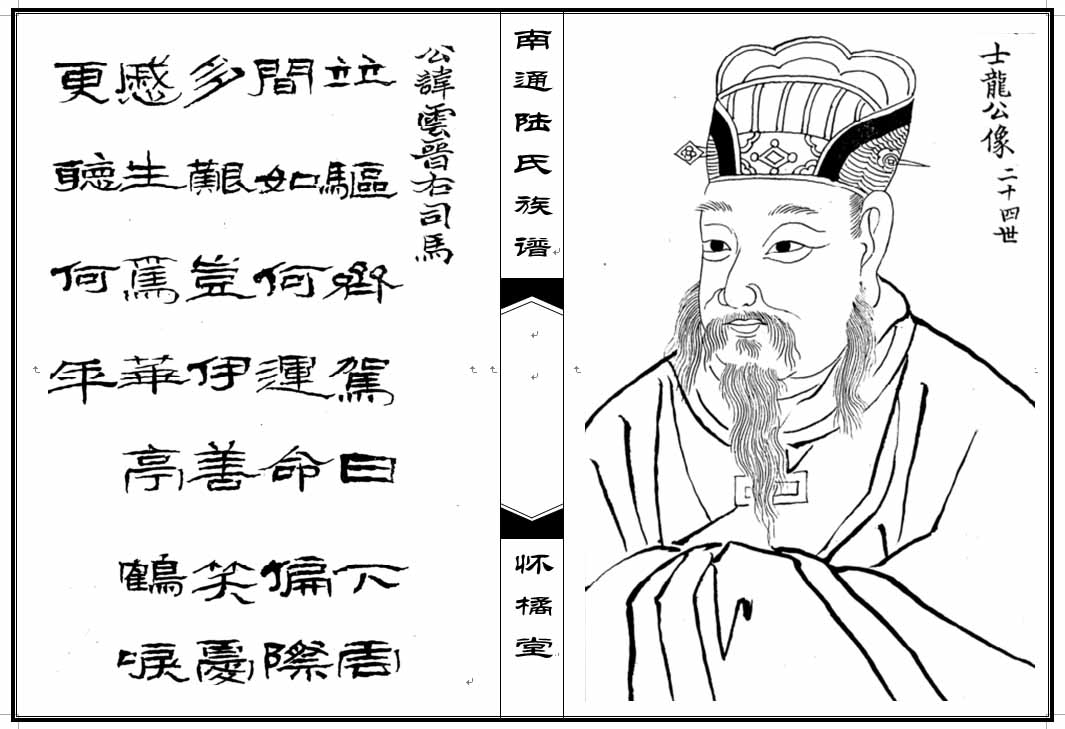 士龍公像 二十四世
南通陆氏族谱
怀橘堂
公諱雲晉右司馬
竝驅齊駕日下雲
間如何運命偏際
多艱豈伊善笑憂
慼生焉華亭鶴唳
更聽何年